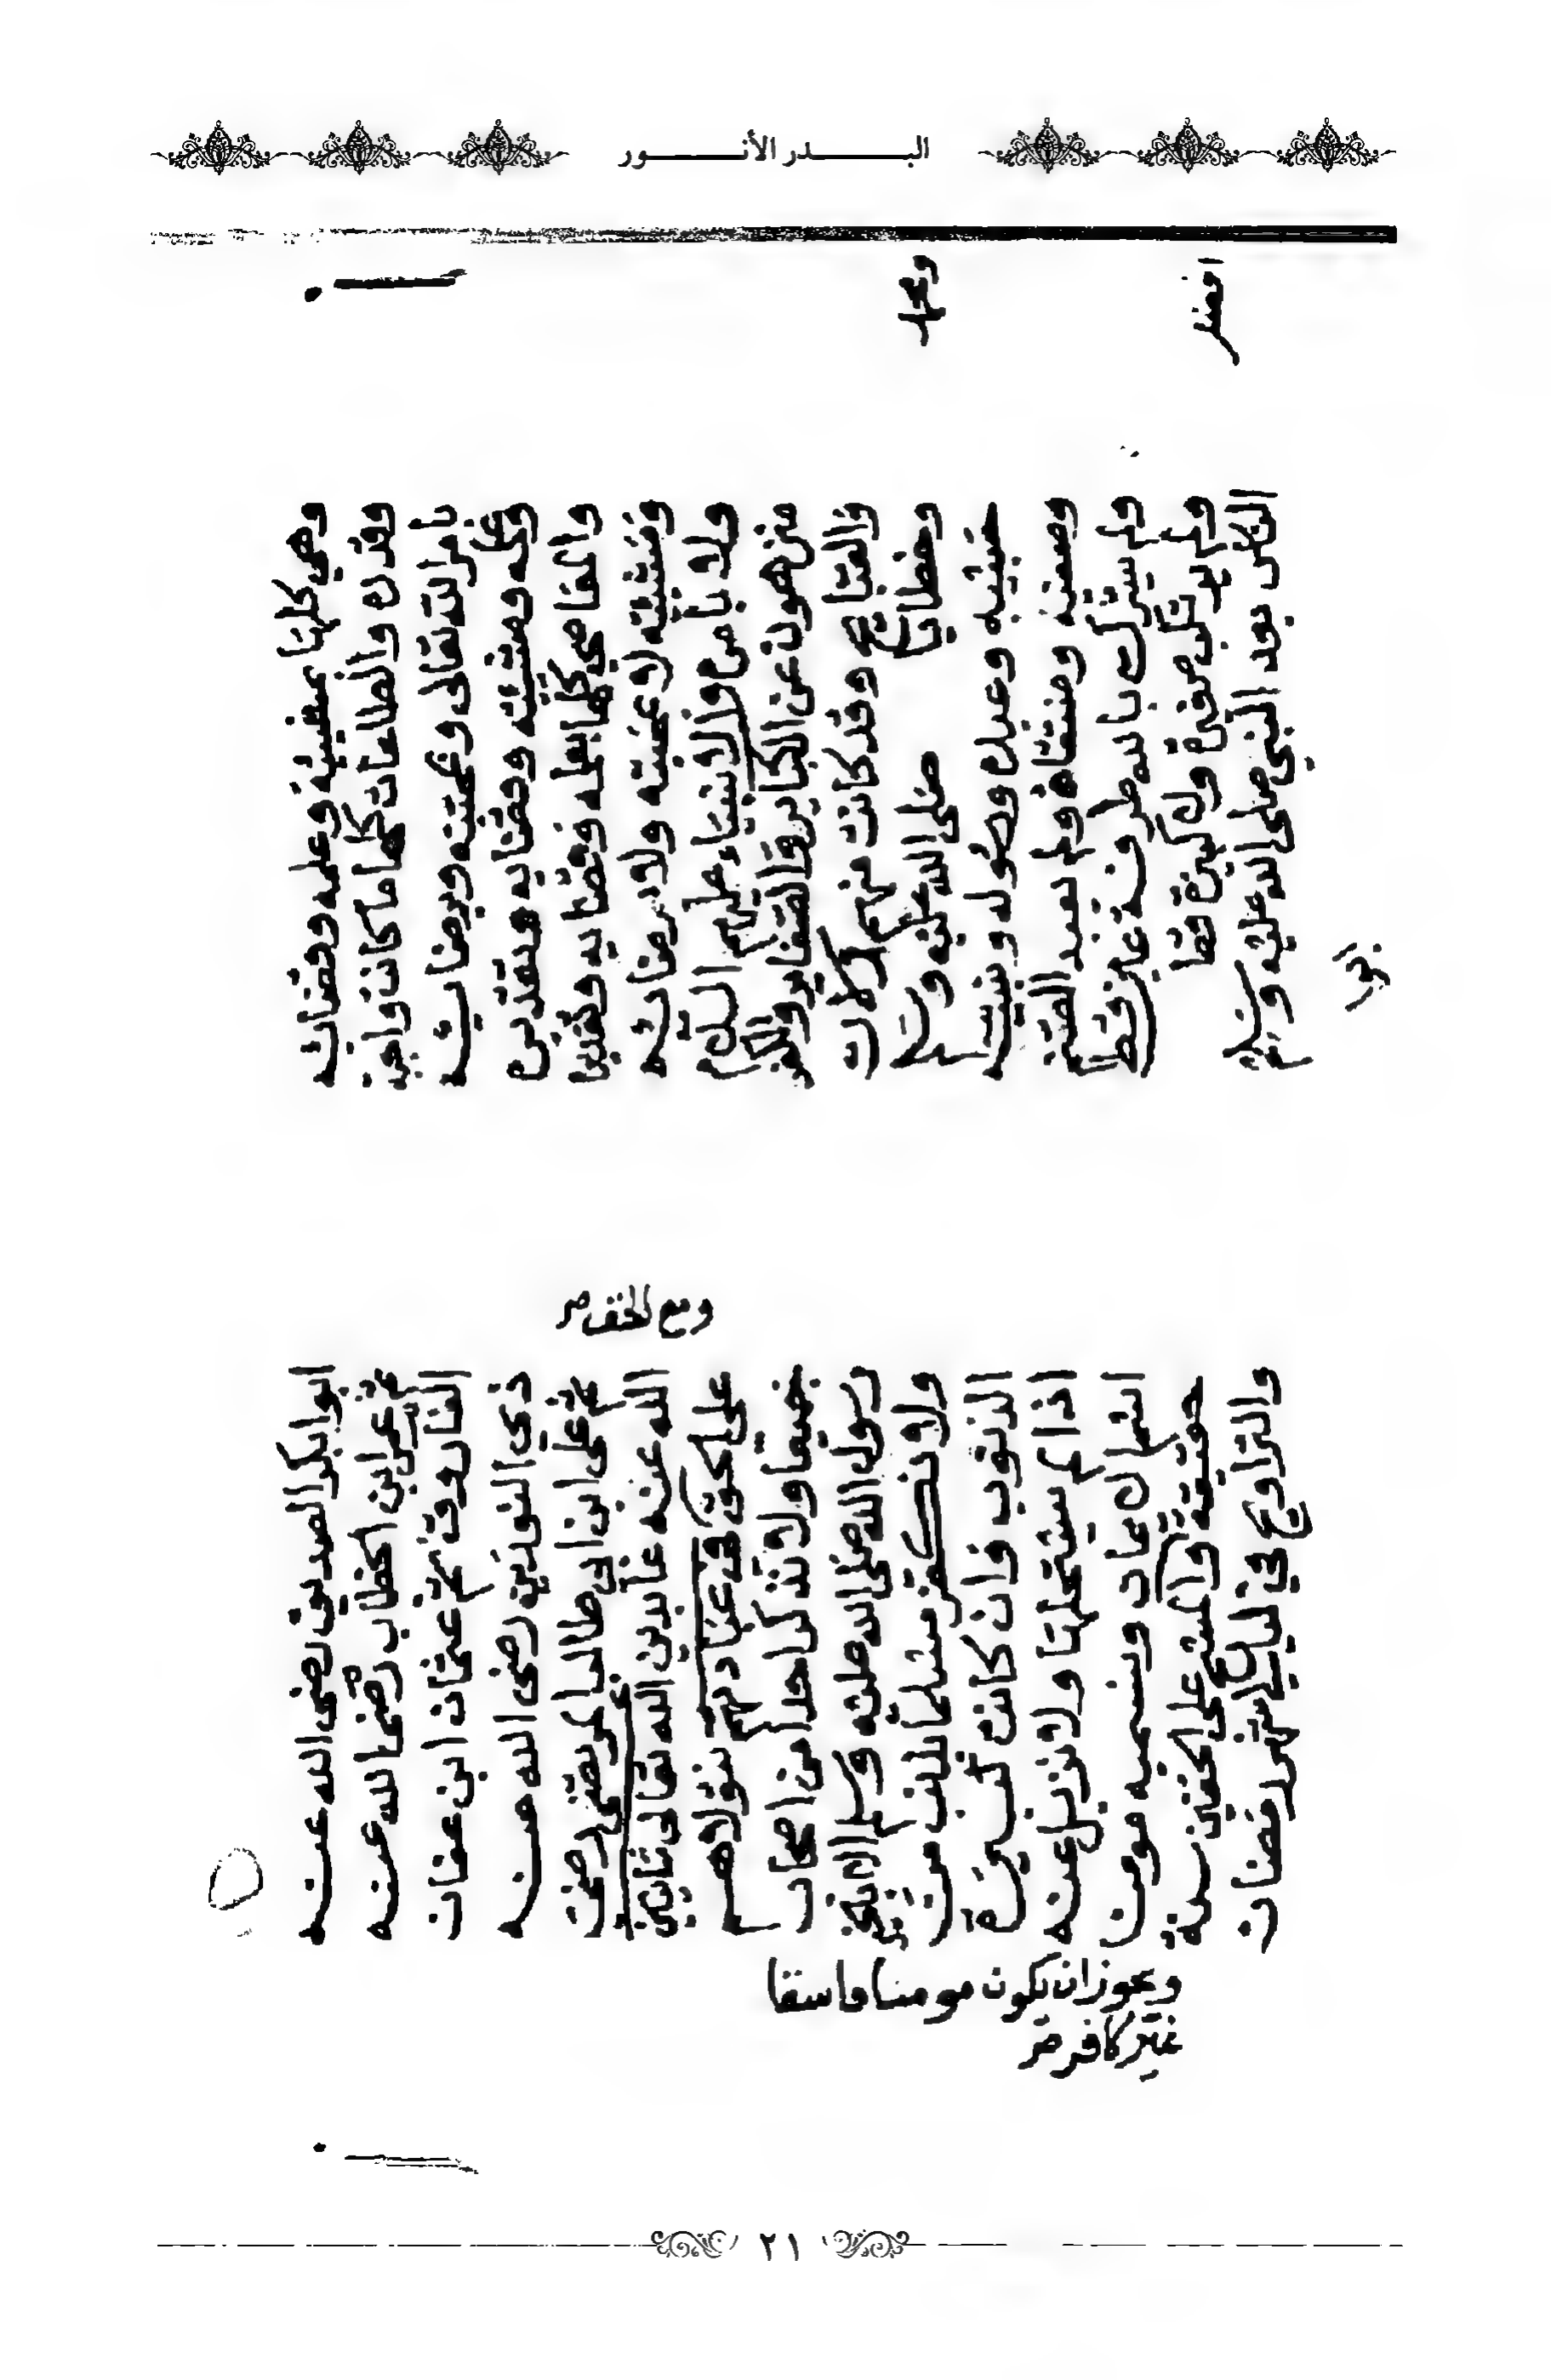 البدر الأنور
ومحمد
افضل
وهي كلها بمشيئته وعلمه وقضائه
وقدره والطاعات كلها ما كانت واجبة
بأمر الله تعالى ومحبته وبرضائه
وعلمه ومشيئته وقضايه وتقديره
والمعاصي كلها بعلمه وقضايه وتقديره
ومشيئته لا بمحبته ولا برضائه
ولا بأمره والانبياء عليهم السلام
منزهون عن الكبائر والصغاير والكفر
والقبائح وقد كانت منهم زلات
وخطايا صلى الله عليه وسلم
حبيبه وعبده ورسوله ونبيه
وصفيه ومنتقاه ولم يعبد الصنم
ولم يشرك بالله طرفة عين قط
ولم يرتكب صغيرة ولا كبيرة قط
الناس بعد النبي صلى الله عليه وسلم
ابوا
ومع الحق صر
ابوا بكر الصديق رضى الله عنه
ثم عمر ابن الخطاب رضى الله عنه
الفاروق ثم عثمان ابن عفان
ذي النورين رضى الله عنه
ثم على ابن ابي طالب المرتضى رضى
الله عنه عابدين الله تعالى ثابتين
على الحق في عبادتهم نتولاهم
جميعا ولا نذكر احدا من اصحاب
رسول الله صلى الله عليه وسلم الا بخير
ولا نكفر مسلما بذنب من
الذنوب وان كانت كبيرة
اذا لم يستحلها ولا نزيل عنه
اسم الايمان ونسميه مومن
حقيقة والمسح على الخفين سنة
والتراويح في ليالي شهر رمضان
ويجوز ان يكون مومنا فاسقا
غير كافر صر
٢١